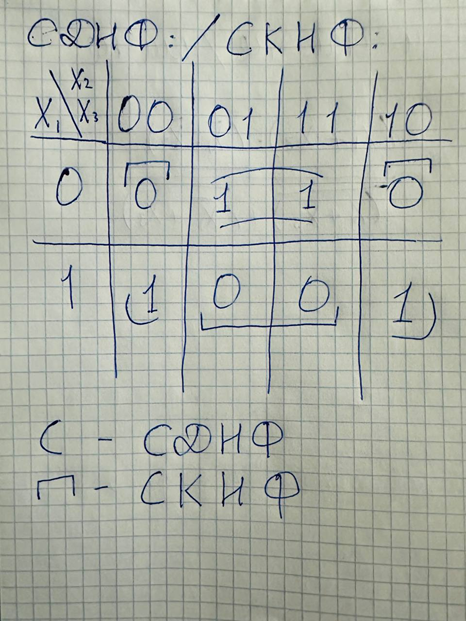 СДНФ: / СКНФ:
X₁\X₂X₃ 00 01 11 10
0 0 1 1 0
1 1 0 0 1
С - СДНФ
П - СКНФ